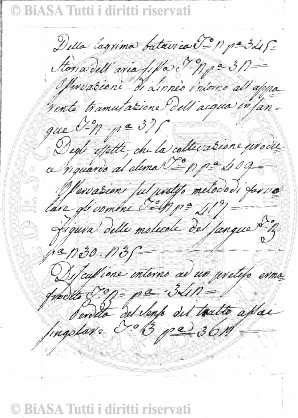 © BIASA Tutti i diritti riservati
Della lagrima batavica T.º n pª 345-
Storia dell'aria fissa T.º n p
Osservazione di Linneo intorno all'appa
rente tramutazione dell'acqua in san
gue T.º n. pª 375
Degli effetti, che la coltivazione produ
ce riguardo al clima T.º n pª 409
Osservazioni sul preteso metodo di formo
lare gli uomini T.º n pª 417
figura delle molecole del sangue T.º
pª
Discussione intorno ad un preteso erma
frodito T.º n- pª
Perdita del senso del tatto assai
singolare T.º 3 pª
© BIASA Tutti i diritti riservati